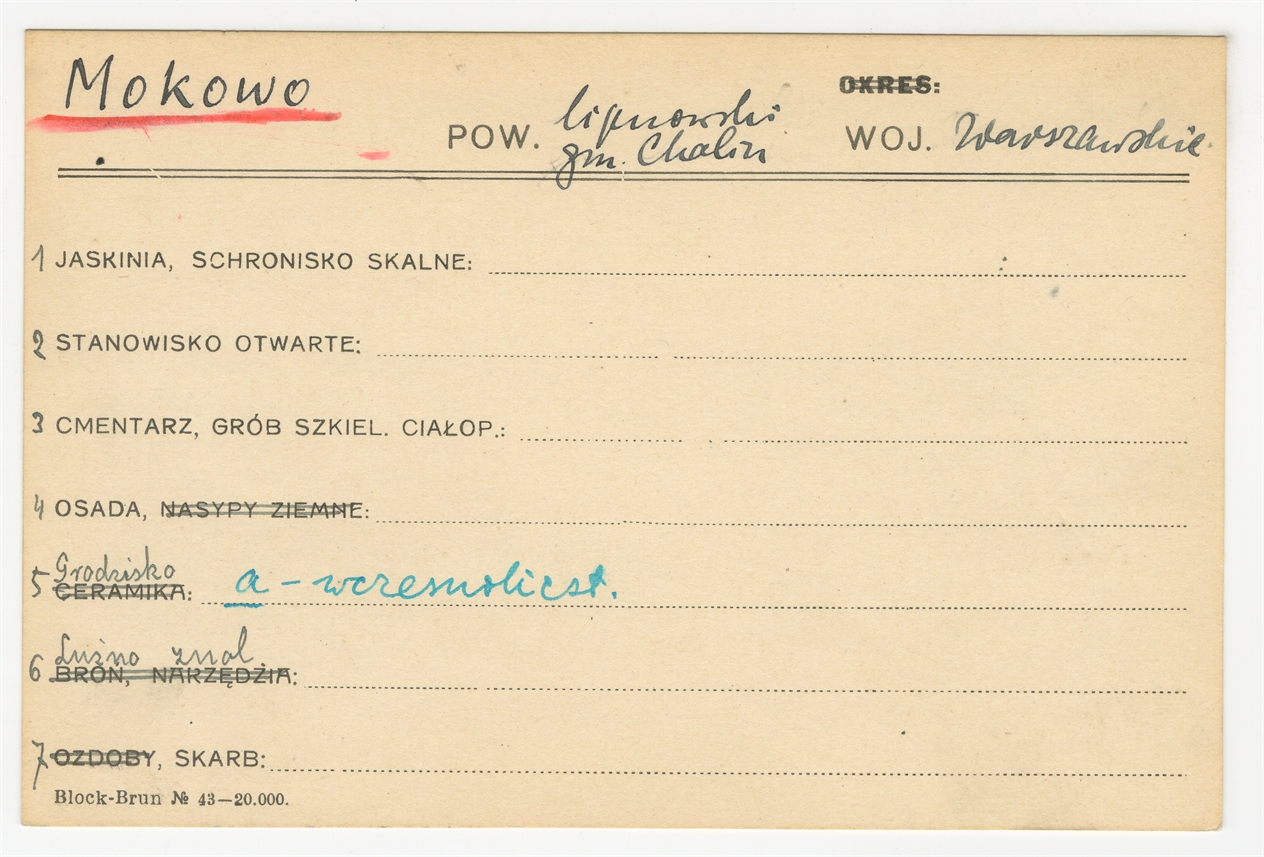 Mokowo
OKRES:
POW. lipnowski WOJ. Warszawskie
gm. Chalin
1 JASKINIA, SCHRONISKO SKALNE:
2 STANOWISKO OTWARTE:
3 CMENTARZ, GRÓB SZKIEL. CIAŁOP.:
4 OSADA, NASYPY ZIEMNE:
Grodzisko
5 CERAMIKA: a - wczesnolicst.
Luźno znal
6 BROŃ, NARZĘDZIA:
7 OZDOBY, SKARB:
Block-Brun № 43—20.000.